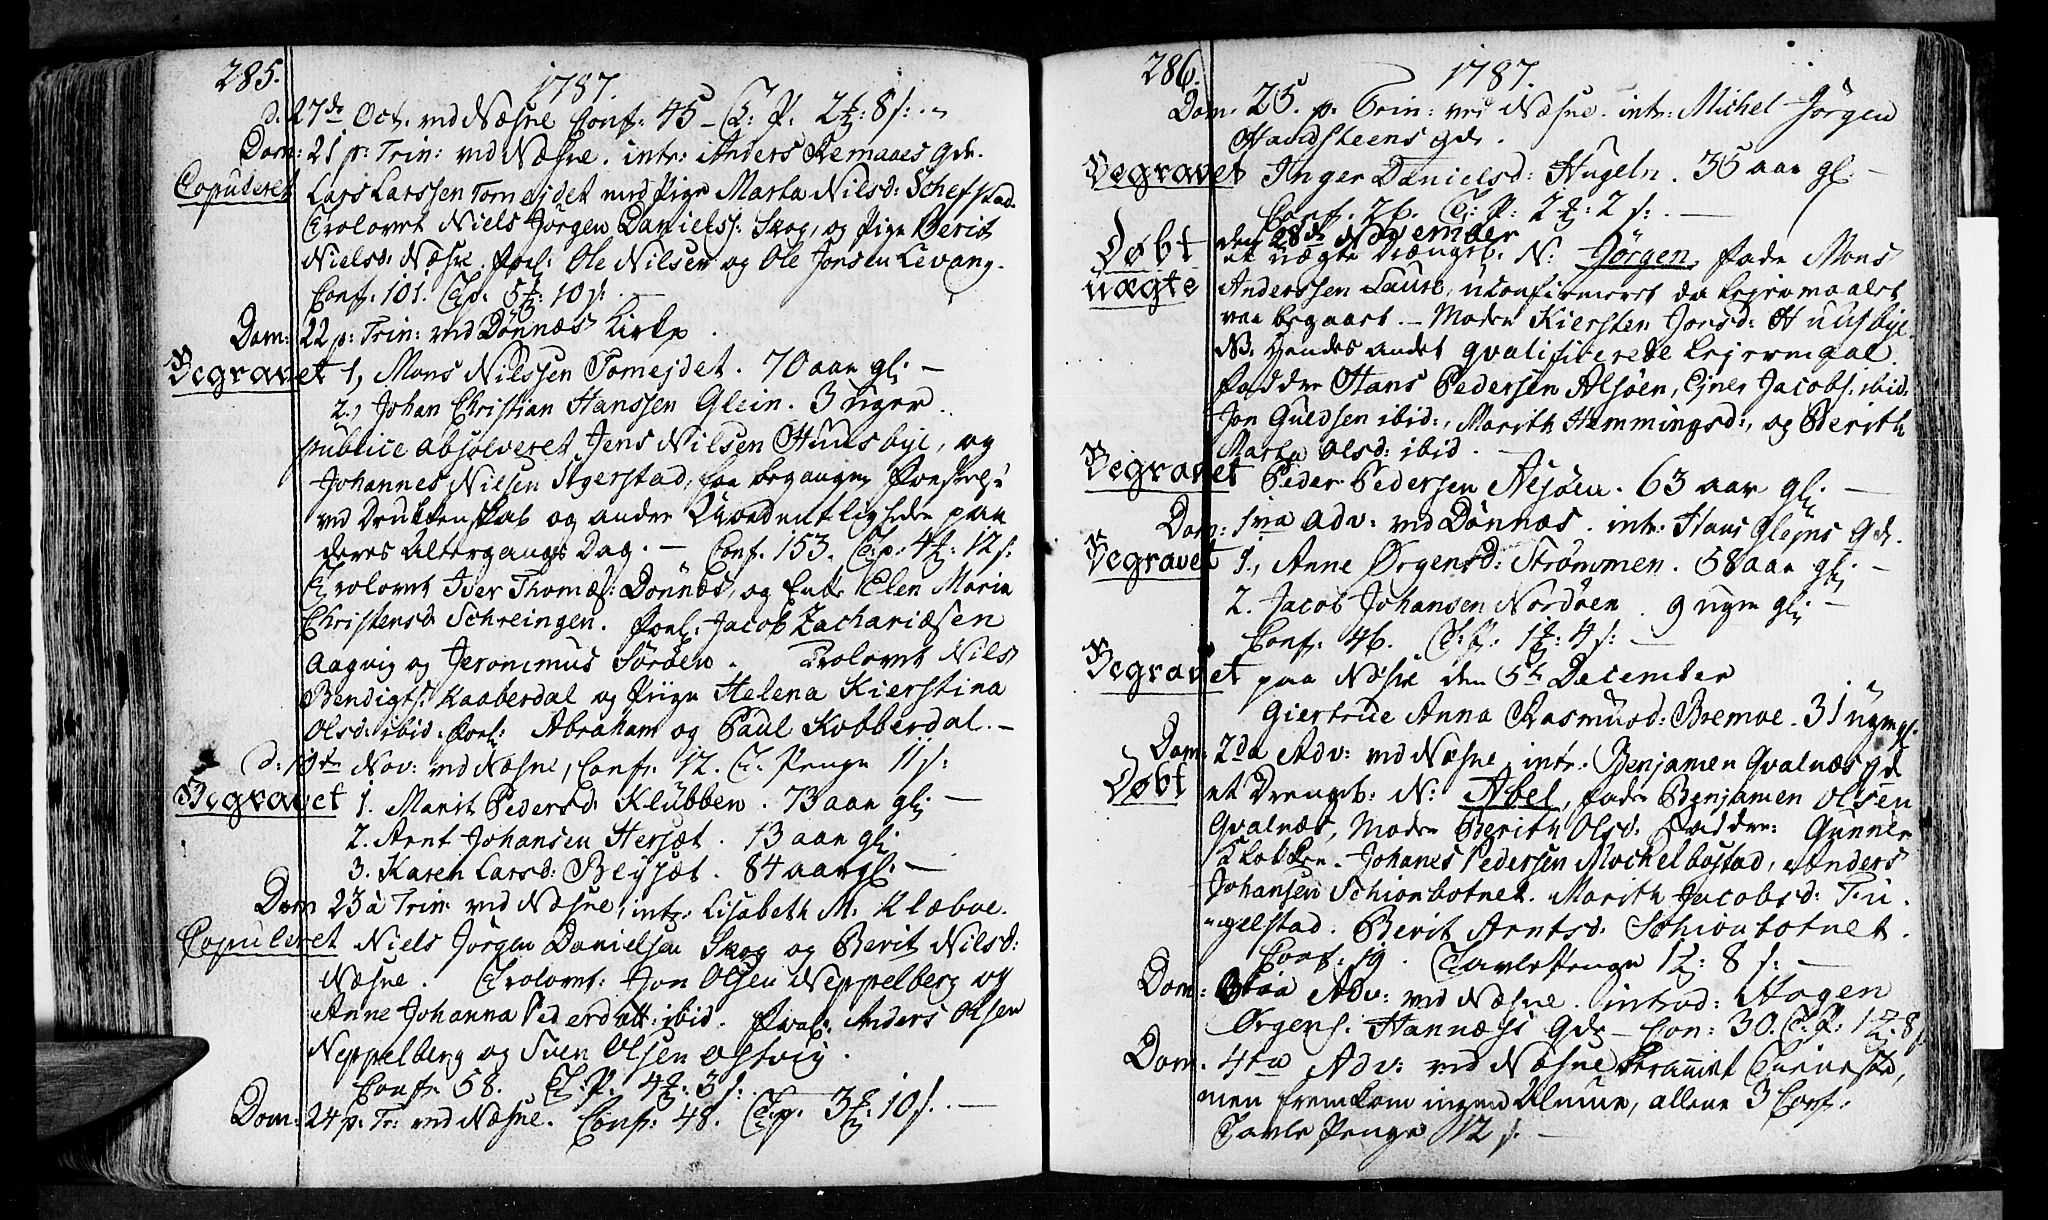 285.
1787.
d. 27de Oct. ved Næsne Conf: 45 - T: P. 2 ʒ: 8 s: -
Dom: 21 p: Trin: ved Næsne. intr: Anders Remaaes gde.
Copuleret Lars Larssen Tomejdet med Pige Marta Nilsd: Schefstad.
Trolovet Niels Jörgen Daniels: Skog, og Pige Berit
Nielsd: Næsne. Forl: Ole Nilsen og Ole Jonsen Levang.
Conf: 101. T:p: 5 ʒ: 10 s:
Dom: 22 p: Trin: ved Dönnæs Kirke.
Begravet 1, Mons Nilssen Tomejdet. 70 aar gl: -
2., Johan Christian Hanssen Glein. 3 uger.
publice absolveret Jens Nilsen Huusbye, og
Johannes Nilsen Stgerstad, for begangen
ved Drukkenskab og anden Uordentlighed paa
deres Altergangs Dag. - Conf. 153. T:p: 4 ʒ: 12 s:
Trolovet Iver Thomæs: Dönnæs, og Enke Elen Maria
Christensd: Schreingen. Forl: Jacob Zachariæsen
Aagvig og Jeronimus Söröen. Trolovet Nils
Bendigts: Kaaberdal og Piige Helena Kierstina
Olsd: ibid: Forl: Abraham og Paul Kobberdal. -
d: 10de Nov: ved Næsne, Conf: 12. T: Penge 11 s:
Begravet 1. Marit Pedersd: Klübben. 73 aar gl: -
2. Arnt Johansen Hersæt. 13 aar gl:
3. Karen Larsd: Bejsæt. 84 aar gl: -
Dom 23 à Trin: ved Næsne, intr: Lisabeth M. Klæboe.
Copuleret Niels Jörgen Danielsen Skog og Berit Nilsd:
Næsne. Trolovet: Jon Olsen Neppelberg og
Anne Johanna Pedersdatt: ibid. Forl: Anders Olsen
Neppelberg og Sven Olsen Ostvig.
Conf: 58. T: P. 4 ʒ: 3 s:
Dom: 24 p: Tr: ved Næsne. Conf: 48. T:p. 3 ʒ: 10 s. -
286.
1787.
Dom. 25. p. Trin: ved Næsne. intr: Michel Jörgen
Havdsteens gde.
Begravet Inger Danielsd: Hugeln. 35 aar gl: -
Conf. 26. T: P: 2 ʒ: 2 s: -
Döbt den 28de November
uægte et uægte Drengeb. N: Jörgen, fader Mons
Anderssen Laure, uconfirmeret da Lejermaalet
var begaaet. - Moder Kiersten Jonsd: Huusbye.
NB. hendes andet qvalificerede Lejermaal.
faddre Hans Pedersen Alsöen, Ejner Jacobs: ibid.
Jon Guldsen ibid:, Marith Hemmingsd:, og Berith
Marta Olsd: ibid.
Begravet Peder Pedersen Alsöen. 63 aar gl: -
Dom: 1ma Adv: ved Dönnæs. intr: Hans Glejns gde.
Begravet 1., Anne Ørgensd: Strömmen. 58 aar gl: -
2. Jacob Johansen Nordöen. 9 uger gl: -
Conf: 46. T:P: 1 ʒ: 4 s: -
Begravet paa Næsne den 5te December
Giertrude Anna Rasmusd: Bremoe. 31 uger gl.
Dom: 2da Adv: ved Næsne, intr: Benjamen Qvalnæs gde
Döbt et Drengeb: N: Abel, fader Benjamen Olsen
Qvalnæs, Moder Berith Olsd: Faddre: Gunner
Klokker. Johanes Pedersen Mockelbostad, Anders
Johansen Schionbotnet. Marith Jacobsd: Fu-
-gelstad. Berit Arntsd: Schionbotnet.
Conf: 19. TavlePenge 1 ʒ: 8 s: -
Dom: 3tia Adv: ved Næsne. introd: Hagen
Ørgens: Hannæss gde - Con: 30. T: P: 1 ʒ: 8 s
Dom. 4ta Adv: ved Næsne
men fremkom ingen Almue, allene 3 Conf:
Tavle Penge 12 s. -